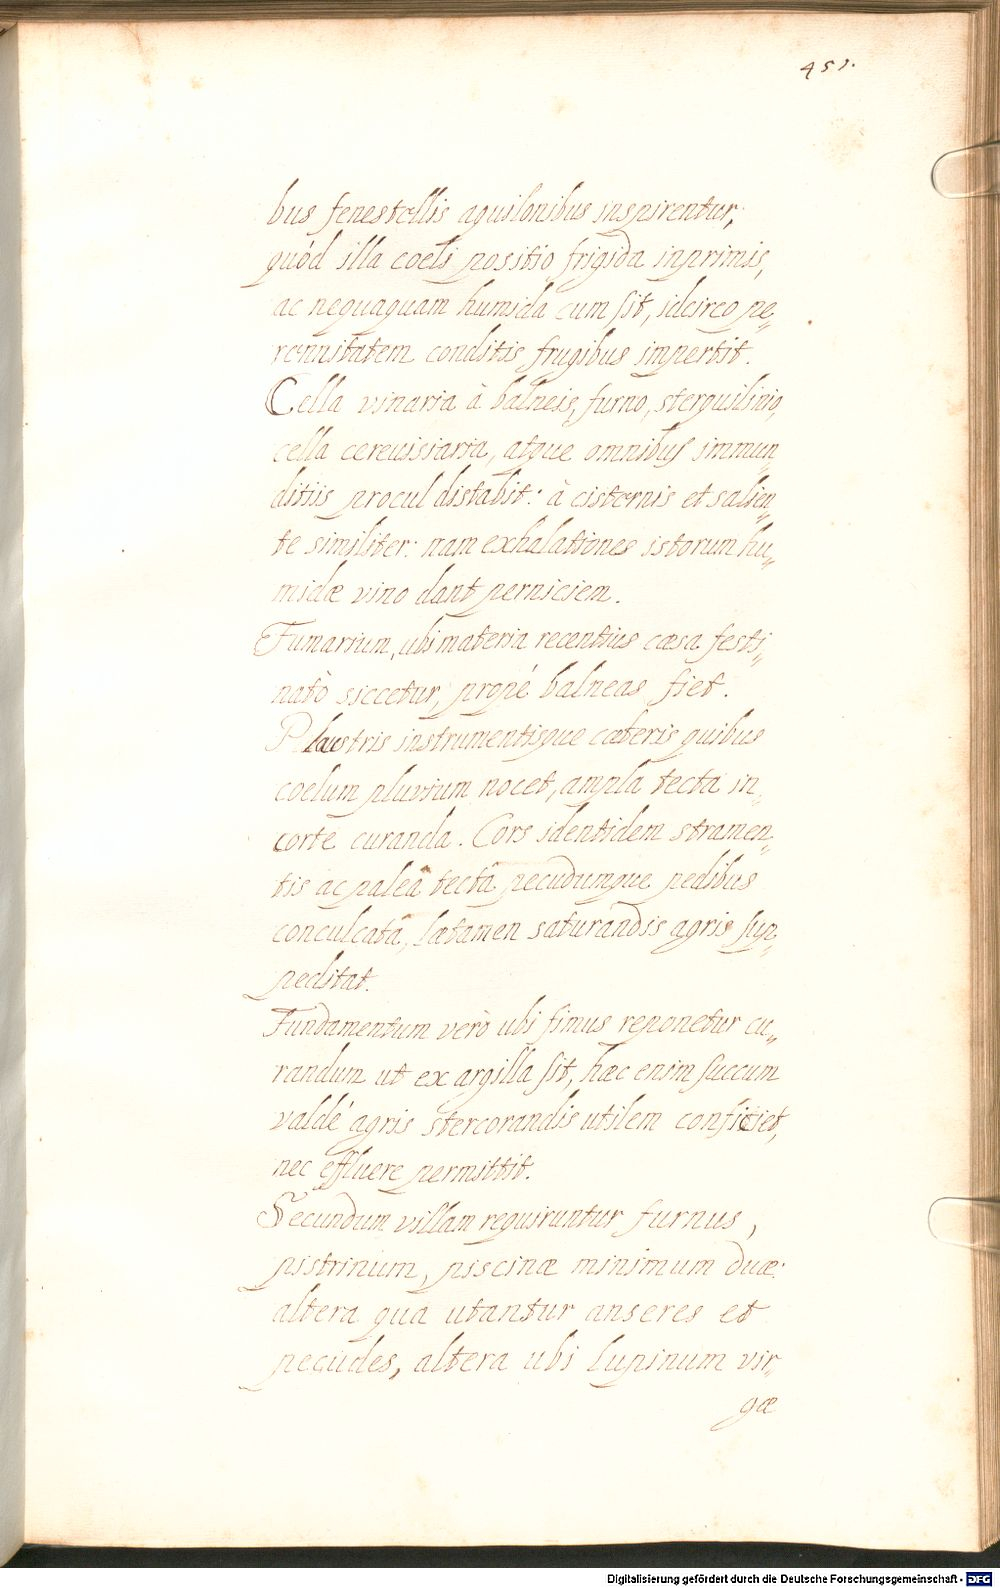 451.
bus fenestellis aquilonibus inspirentur,
quód illa coeli positio frigida inprimis,
ac nequaquam humida cum sit, idcirco pe„
rennitatem conditis frugibus impertit.
Cella vinaria à balneis, furno, sterquilinio,
cella cereuisiaria, atque omnibus immun„
ditiis procul distabit: à cisternis et salien„
te similiter: nam exhalationes istorum hu„
midæ vino dant perniciem.
Fumarium, ubi materia recentius cæsa festi„
natò siccetur, propé balneas fiet.
Plaustris instrumentisque cæteris quibus
coelum pluvium nocet, ampla tecta in„
corte curanda. Cors identidem stramen„
tis ac paleâ tectâ pecudumque pedibus
conculcatâ, lætamen saturandis agris sup„
peditat.
Fundamentum verò ubi fimus reponetur cu„
randum ut ex argilla sit, hæc enim succum
valdé agris stercorandis utilem conficiet,
nec effluere permittit.
Secundum villam requiruntur furnus,
pistrinum, piscinæ minimum duæ:
altera qua utantur anseres et
pecudes, altera ubi lupinum vir„
gæ
Digitalisierung gefördert durch die Deutsche Forschungsgemeinschaft - DFG